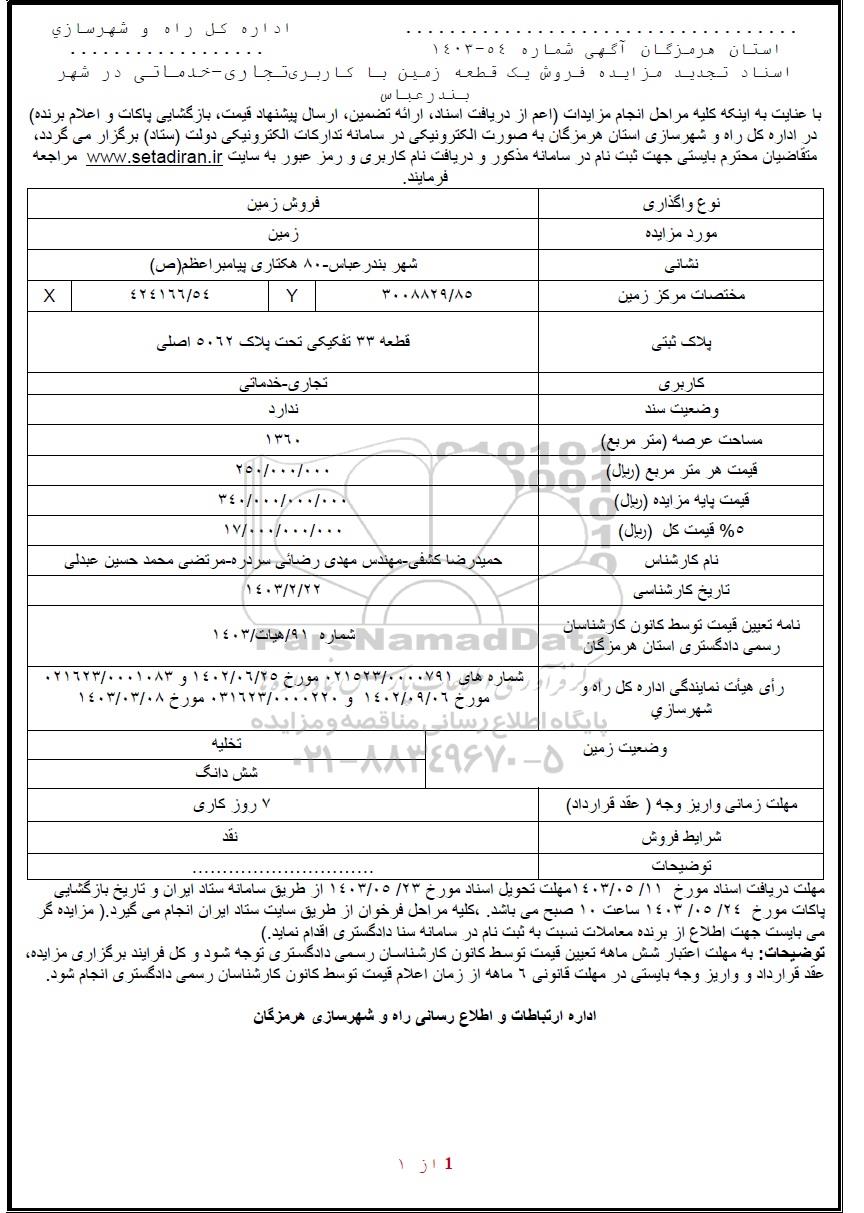 ..................................... اداره کل راه و شهرسازي
استان هرمزگان آگهی شماره ٥٤-١٤٠٣ ..................
اسناد تجدید مزایده فروش یک قطعه زمین با کاربریتجاری-خدماتی در شهر
بندرعباس
با عنایت به اینکه کلیه مراحل انجام مزایدات (اعم از دریافت اسناد، ارائه تضمین، ارسال پیشنهاد قیمت، بازگشایی پاکات و اعلام برنده)
در اداره کل راه و شهرسازی استان هرمزگان به صورت الکترونیکی در سامانه تدارکات الکترونیکی دولت (ستاد) برگزار می گردد،
متقاضیان محترم بایستی جهت ثبت نام در سامانه مذکور و دریافت نام کاربری و رمز عبور به سایت www.setadiran.ir مراجعه
فرمایند.
نوع واگذاری فروش زمین
مورد مزایده زمین
نشانی شهر بندرعباس-٨٠ هکتاری پیامبراعظم(ص)
مختصات مرکز زمین ٣٠٠٨٨٢٩/٨٥ Y ٤٢٤١٦٦/٥٤ X
پلاک ثبتی قطعه ٣٣ تفکیکی تحت پلاک ٥٠٦٢ اصلی
کاربری تجاری-خدماتی
وضعیت سند ندارد
مساحت عرصه (متر مربع) ١٣٦٠
قیمت هر متر مربع (ریال) ٢٥٠/٠٠٠/٠٠٠
قیمت پایه مزایده (ریال) ٣٤٠/٠٠٠/٠٠٠/٠٠٠
٥% قیمت کل (ریال) ١٧/٠٠٠/٠٠٠/٠٠٠
نام کارشناس حمیدرضا کشفی-مهندس مهدی رضائی سردره-مرتضی محمد حسین عبدلی
تاریخ کارشناسی ١٤٠٣/٢/٢٢
نامه تعیین قیمت توسط کانون کارشناسان
رسمی دادگستری استان هرمزگان
شماره ٩١/هیات/١٤٠٣
رأی هیأت نمایندگی اداره کل راه و
شهرسازي
شماره های ٠٢١٥٢٣/٠٠٠٠٧٩١ مورخ ١٤٠٢/٠٦/٢٥ و ٠٢١٦٢٣/٠٠٠١٠٨٣
مورخ ١٤٠٢/٠٩/٠٦ و ٠٣١٦٢٣/٠٠٠٠٢٢٠ مورخ ١٤٠٣/٠٣/٠٨
وضعیت زمین تخلیه
شش دانگ
مهلت زمانی واریز وجه ( عقد قرارداد) ٧ روز کاری
شرایط فروش نقد
توضیحات ..............................
مهلت دریافت اسناد مورخ ١١/ ١٤٠٣/٠٥مهلت تحویل اسناد مورخ ٢٣/ ١٤٠٣/٠٥ از طریق سامانه ستاد ایران و تاریخ بازگشایی
پاکات مورخ ٢٤/ ٠٥/ ١٤٠٣ ساعت ١٠ صبح می باشد. ،کلیه مراحل فرخوان از طریق سایت ستاد ایران انجام می گیرد.( مزایده گر
می بایست جهت اطلاع از برنده معاملات نسبت به ثبت نام در سامانه سنا دادگستری اقدام نماید.)
توضیحات: به مهلت اعتبار شش ماهه تعیین قیمت توسط کانون کارشناسان رسمی دادگستری توجه شود و کل فرایند برگزاری مزایده،
عقد قرارداد و واریز وجه بایستی در مهلت قانونی ٦ ماهه از زمان اعلام قیمت توسط کانون کارشناسان رسمی دادگستری انجام شود.
اداره ارتباطات و اطلاع رسانی راه و شهرسازی هرمزگان
1 از ١
ParsNamadData
پایگاه اطلاع رسانی مناقصه و مزایده
۰۲۱-۸۸۳۴۹۶۷۰-۵